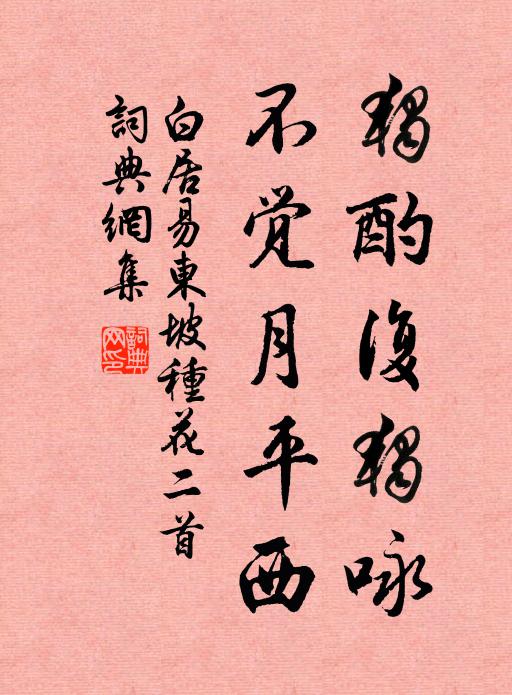 獨酌復獨咏
不覺月平西
白居易東坡種花二首
詞典網集
詞典網印